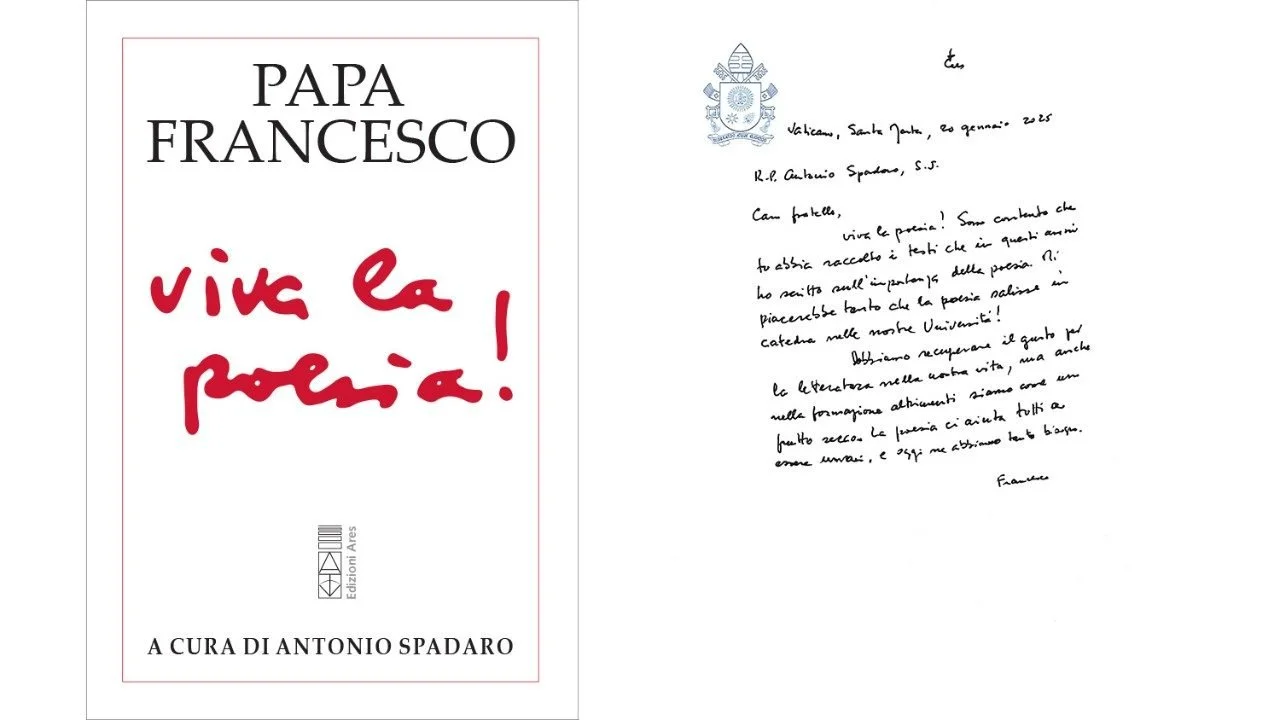 PAPA
FRANCESCO
viva la
poesia!
Edizioni Ares
A CURA DI ANTONIO SPADARO
Vaticano, Santa Marta, 20 gennaio 2025
R.P. Antonio Spadaro, S.J.
Caro fratello,
viva la poesia! Sono contento che
tu abbia raccolto i testi che in questi anni
ho scritto sull'importanza della poesia. Mi
piacerebbe tanto che la poesia salisse in
catedra nelle nostre Università!
Dobbiamo recuperare il gusto per
la letteratura nella nostra vita, ma anche
nella formazione altrimenti siamo come un
frutto secco. La poesia ci aiuta tutti a
essere umani, e oggi ne abbiamo tanto bisogno.
Francesco